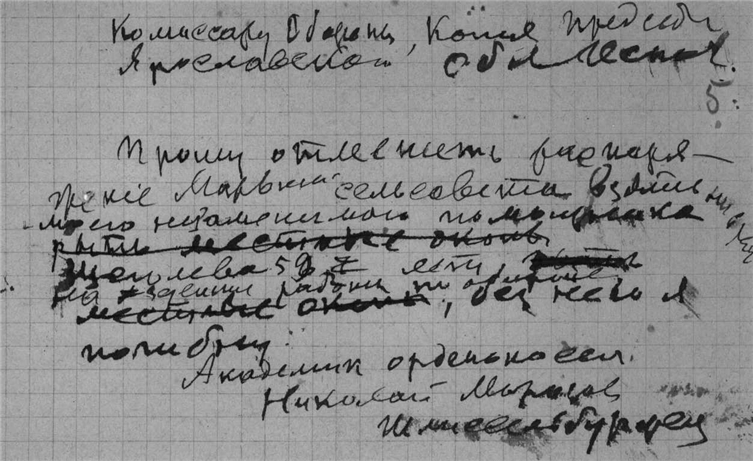 Комиссару Обороны, Копия Председ
Ярославской обл
5.
Прошу отменить распоря-
жение сельсовета взять
моего незаменимого помощника
рыть местные окопы
Щеголева лет рыть
на работы по обороне
местные окопы, без него я
погибну.
Академик орденоносец
Николай Морозов
Шлиссельбуржец